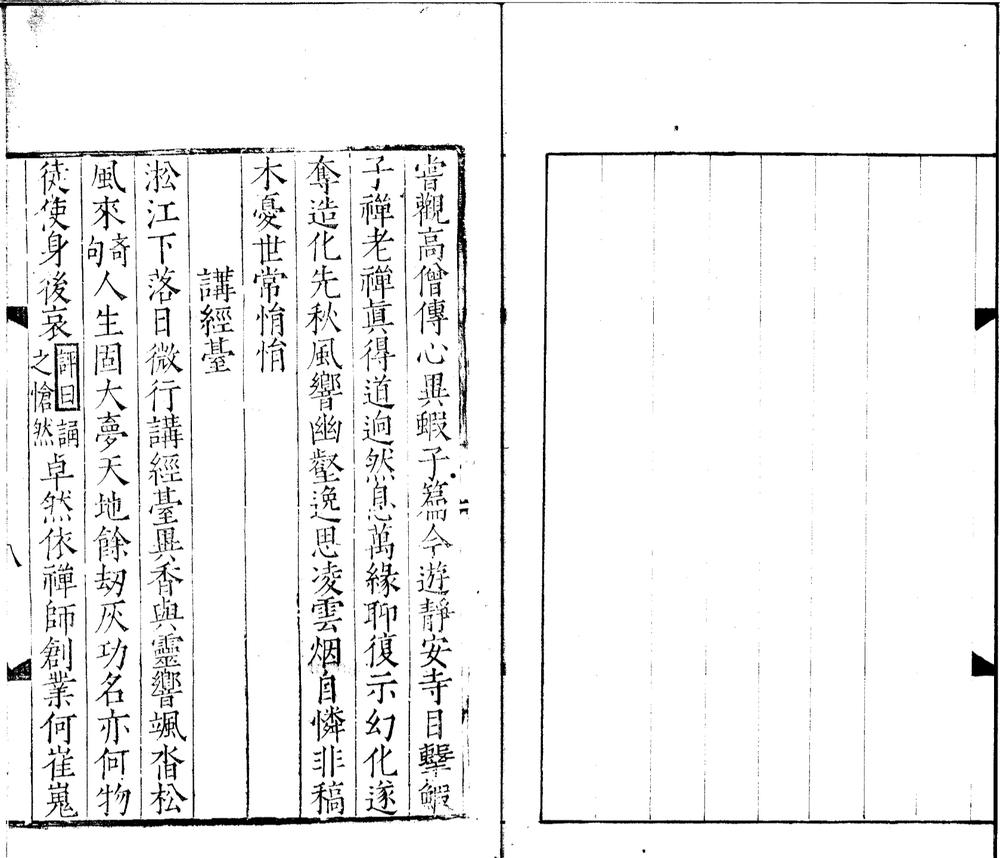 嘗觀高僧傳心異蝦子篇今遊靜安寺目擊鰕
子禪老禪眞得道逈然息萬緣聊復示幻化遂
奪造化先秋風響幽壑逸思凌雲烟自憐非稿
木憂世常悁悁
講經臺
淞江下落日微行講經臺異香與靈響颯沓松
風來奇句人生固大夢天地餘刼灰功名亦何物
徒使身後哀評曰誦之愴然卓然依禪師創業何崔嵬
八